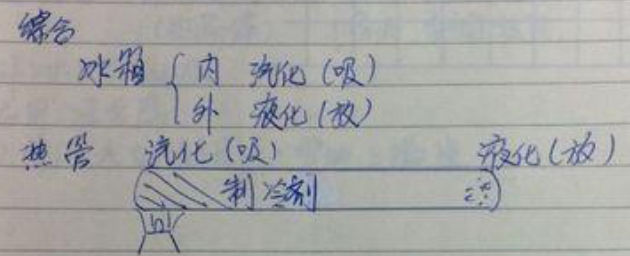 综合
冰箱 { 内 汽化(吸)
外 液化(放)
热管 汽化(吸) 液化(放)
制冷剂